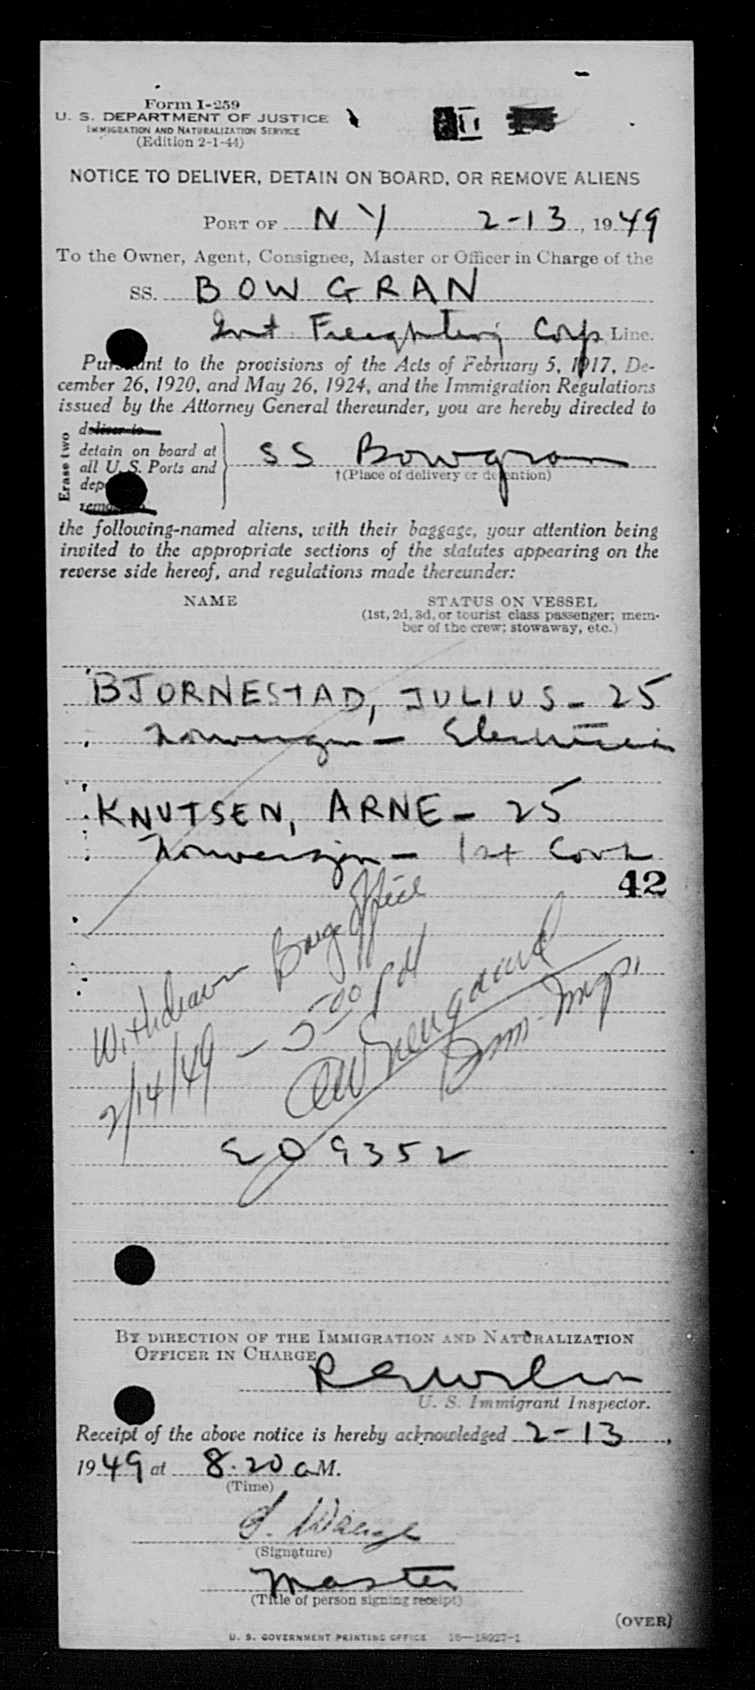 Form I-259
U. S. DEPARTMENT OF JUSTICE
IMMIGRATION AND NATURALIZATION SERVICE
(Edition 2-1-44)
NOTICE TO DELIVER, DETAIN ON BOARD, OR REMOVE ALIENS
PORT OF N Y 2-13, 1949
To the Owner, Agent, Consignee, Master or Officer in Charge of the
SS. BOW GRAN
Int. Freighting Corp Line.
Pursuant to the provisions of the Acts of February 5, 1917, De-
cember 26, 1920, and May 26, 1924, and the Immigration Regulations
issued by the Attorney General thereunder, you are hereby directed to
Erase two
deliver to
detain on board at
all U. S. Ports and
SS Bowgran
†(Place of delivery or detention)
the following-named aliens, with their baggage, your attention being
invited to the appropriate sections of the statutes appearing on the
reverse side hereof, and regulations made thereunder:
NAME STATUS ON VESSEL
(1st, 2d, 3d, or tourist class passenger; mem-
ber of the crew; stowaway, etc.)
BJORNESTAD, JULIUS - 25
Norwegian - Electrician
KNUTSEN, ARNE - 25
Norwegian - 1st Cook
42
Withdrawn Barge Office
2/14/49 - 5:00 PM
Imm. Insp.
EO 9352
BY DIRECTION OF THE IMMIGRATION AND NATURALIZATION
OFFICER IN CHARGE
U. S. Immigrant Inspector.
Receipt of the above notice is hereby acknowledged 2-13,
1949 at 8.20 a M.
(Time)
(Signature)
Master
(Title of person signing receipt)
(OVER)
U. S. GOVERNMENT PRINTING OFFICE 16—18927-1